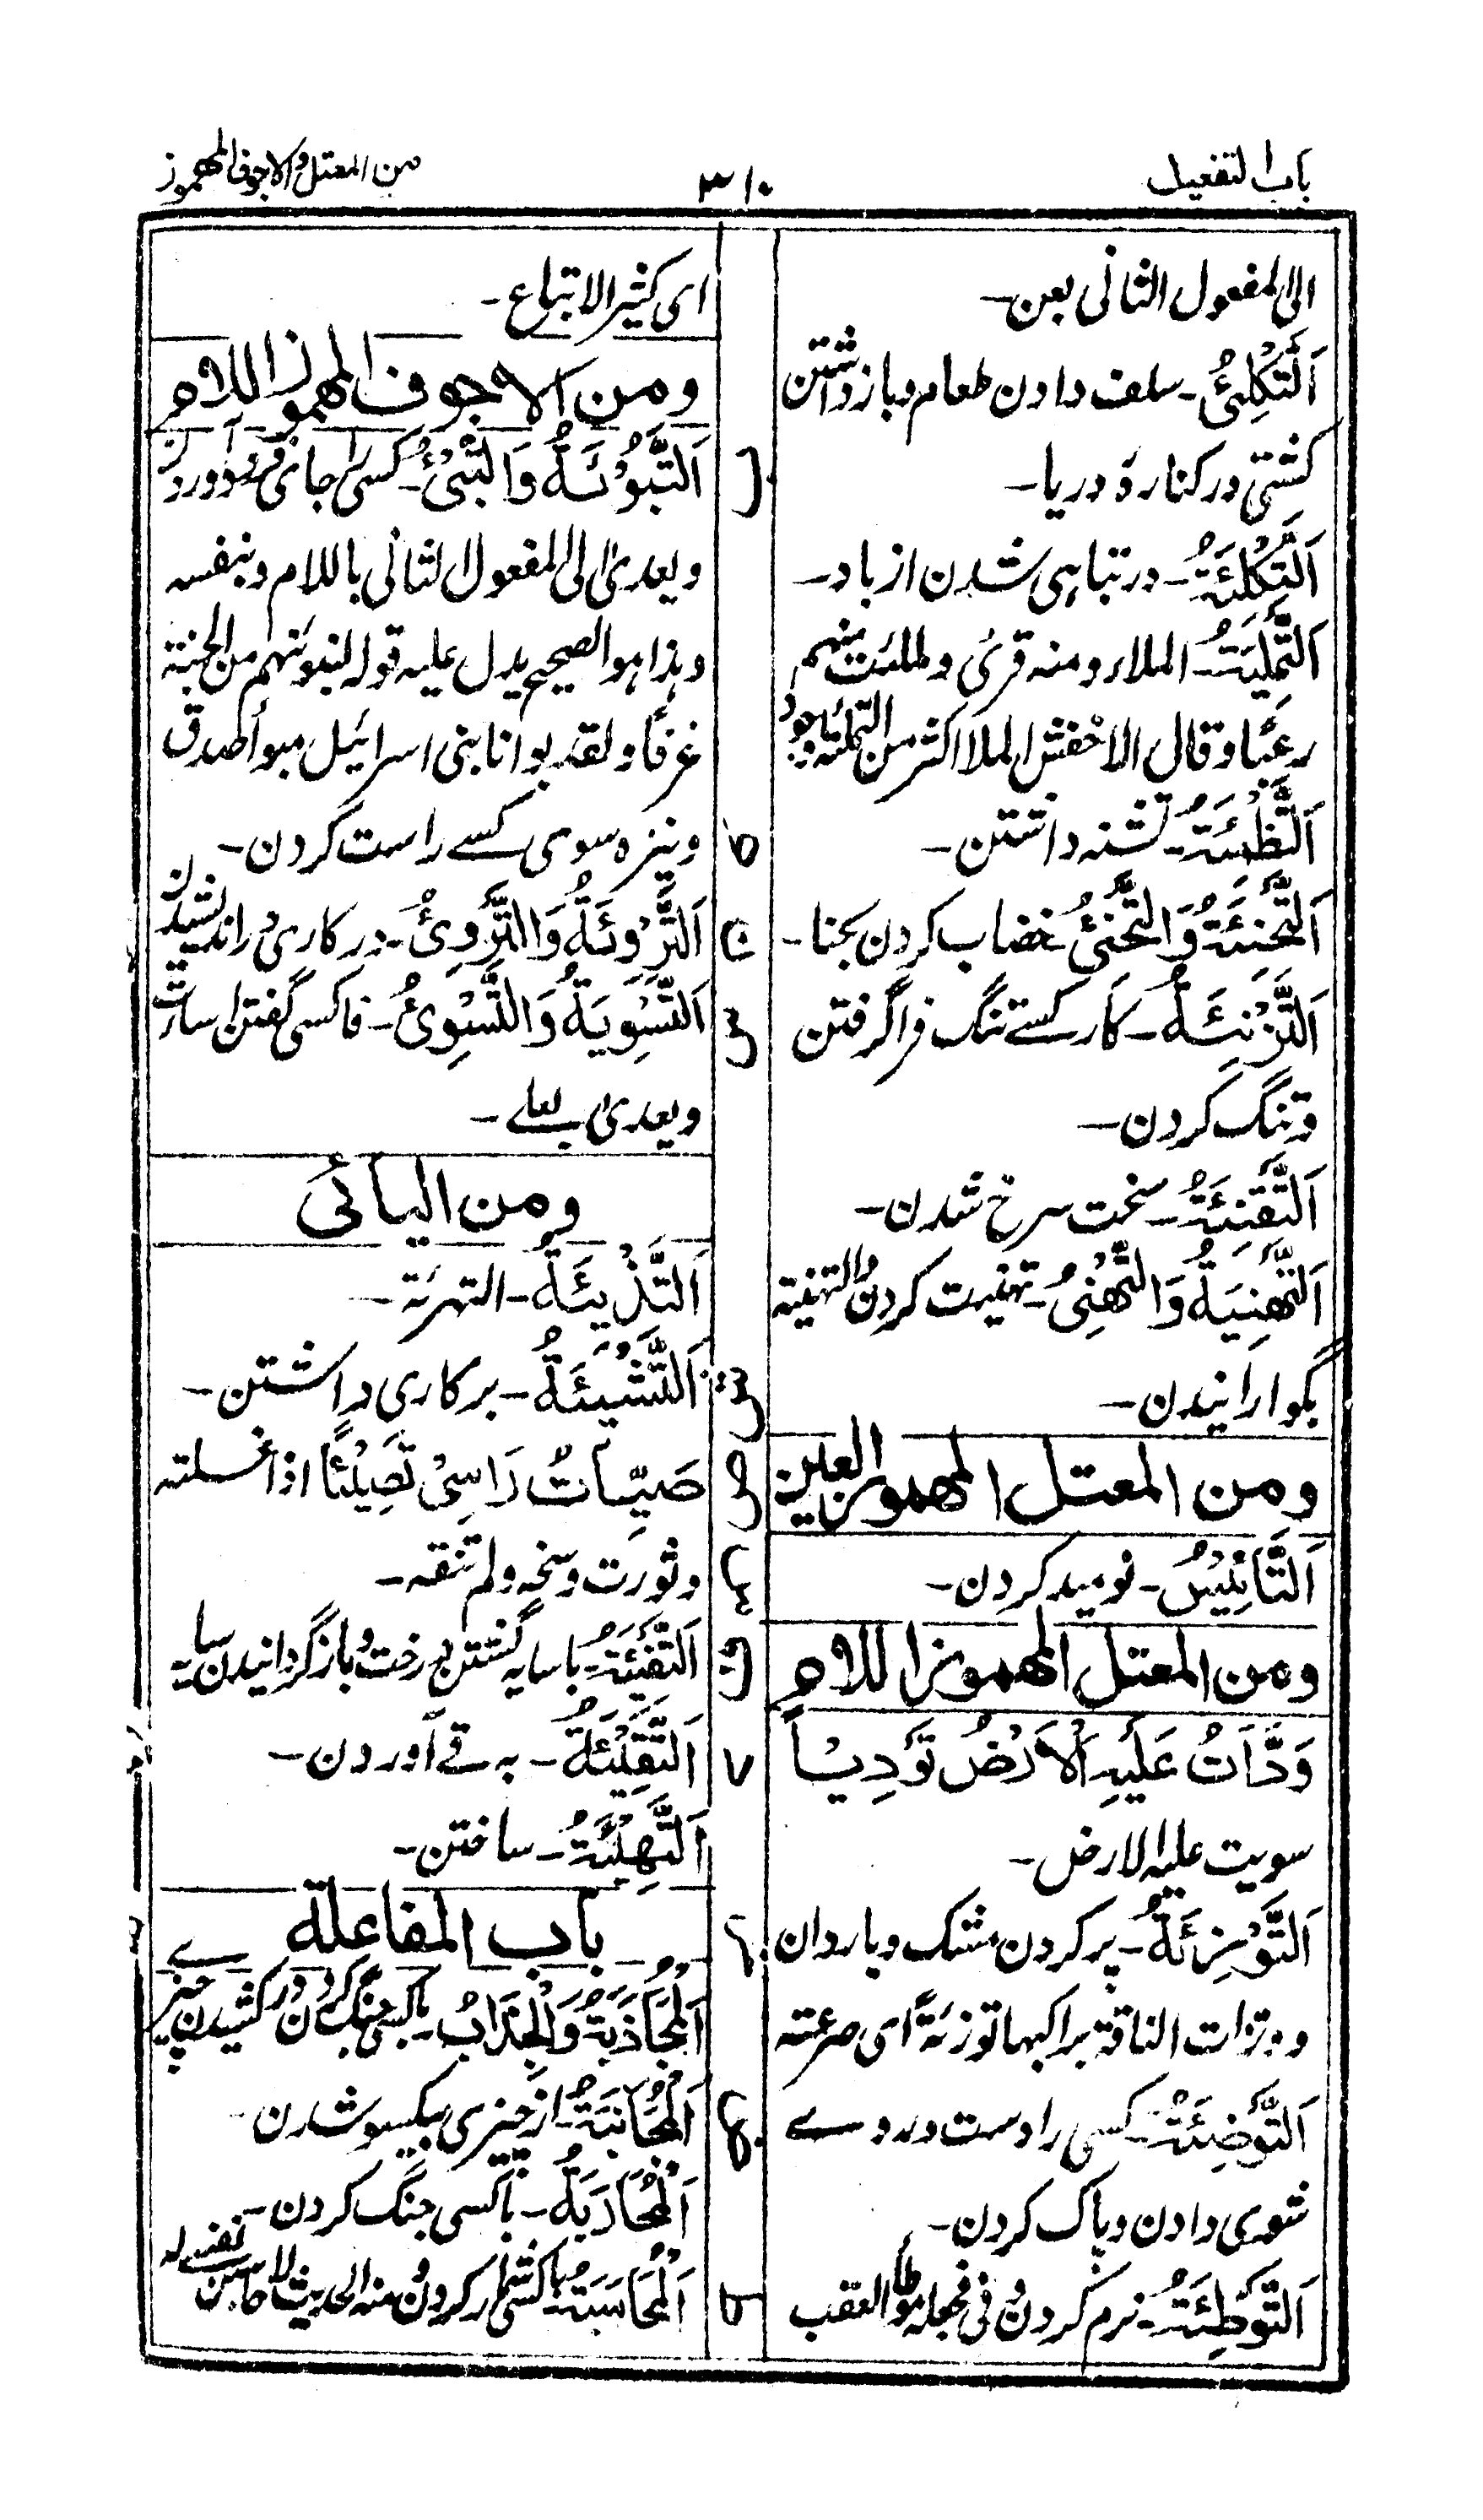 باب التفعیل
۳۱۰
من المعتل والاجوف المهموز
الی المفعول الثانی بعن۔
اَلتَّکْلِئُ۔ سلف دادن طعام و باز داشتن
کشتی در کنارهٔ دریا۔
اَلتَّکْلِئَةُ۔ در تباہی شدن از باد۔
اَلتَّمْلِیَتُ۔ الملاء ومنه قرئ ولملئت منهم
رعبا وقال الاخفش الملا اکثر من التملئة
اَلتَّظْمِئَةُ۔ تشنه داشتن۔
اَلتَّحْنِئَةُ وَالتَّحْنِئُ خضاب کردن بحنا۔
اَلتَّزْنِئَةُ۔ کار کسے تنگ فرا گرفتن
وتنگ کردن۔
اَلتَّقْنِئَةُ۔ سخت سرخ شدن۔
اَلتَّهْنِیَةُ وَالتَّهْنِئُ۔ تهنیت کردن والتهنیة
بگوارانیدن۔
ومن المعتل المهموز العین
اَلتَّأئِیْسُ۔ نومید کردن۔
ومن المعتل المهموز اللام
وَدَّأَتْ عَلَیْهِ الْاَرْضُ تَوْدِیْئاً
سویت علیه الارض۔
اَلتَّوْزِئَةُ۔ پر کردن مشک و باردان
و وزات الناقة براکبها توزئة ای صرعته
اَلتَّوْضِئَةُ۔ کسی را دست و روے
شوی دادن و پاک کردن۔
اَلتَّوْطِئَةُ۔ نرم کردن و فی فجعله موطأ العقب
ای کثیر الاتباع۔
ومن الاجوف المهموز اللام
ا اَلتَّبْوِئَةُ وَالتَّبْوِئُ۔ کسی را جای فرود آوردن
ویعدی الی المفعول الثانی باللام وبنفسه
وہذا ہو الصحیح یدل علیه قوله لنبوئنهم من الجنة
غرفا ولقد بوانا بنی اسرائیل مبوأ صدق
ط ونیزه سوی کسے راست کردن۔
ن اَلتَّرْوِئَةُ وَالتَّرْوِئُ۔ در کاری در اندیشیدن
اَلتَّسْوِیَةُ وَالتَّسْوِئُ۔ فاکسی گفتن اسأت
ویعدی بعلے۔
ومن الیائی
اَلتَّذْیِئَةُ۔ التهرئة۔
اَلتَّشْیِئَةُ۔ بر کاری داشتن۔
صَیَّأتُ رَاسِیْ تَصْیِیْئًا اذا غسلته
وثورت وسخه ولم تنقه۔
اَلتَّفْیِئَةُ۔ با سایه گشتن درخت و باز گردانیدن سایه
اَلتَّقْیِئَةُ۔ به قے آوردن۔
اَلتَّهْیِئَةُ۔ ساختن۔
باب المفاعلة
اَلْمُجَاذَبَةُ وَالْجِذَابُ۔ باکسی جنگ کردن در کشیدن چیزے
اَلْمُجَانَبَةُ۔ از چیزی بیکسو شدن۔
اَلْمُحَارَبَةُ۔ باکسی جنگ کردن۔
اَلْمُحَاسَبَةُ۔ باکسی شمار کردن ومنه الحدیث